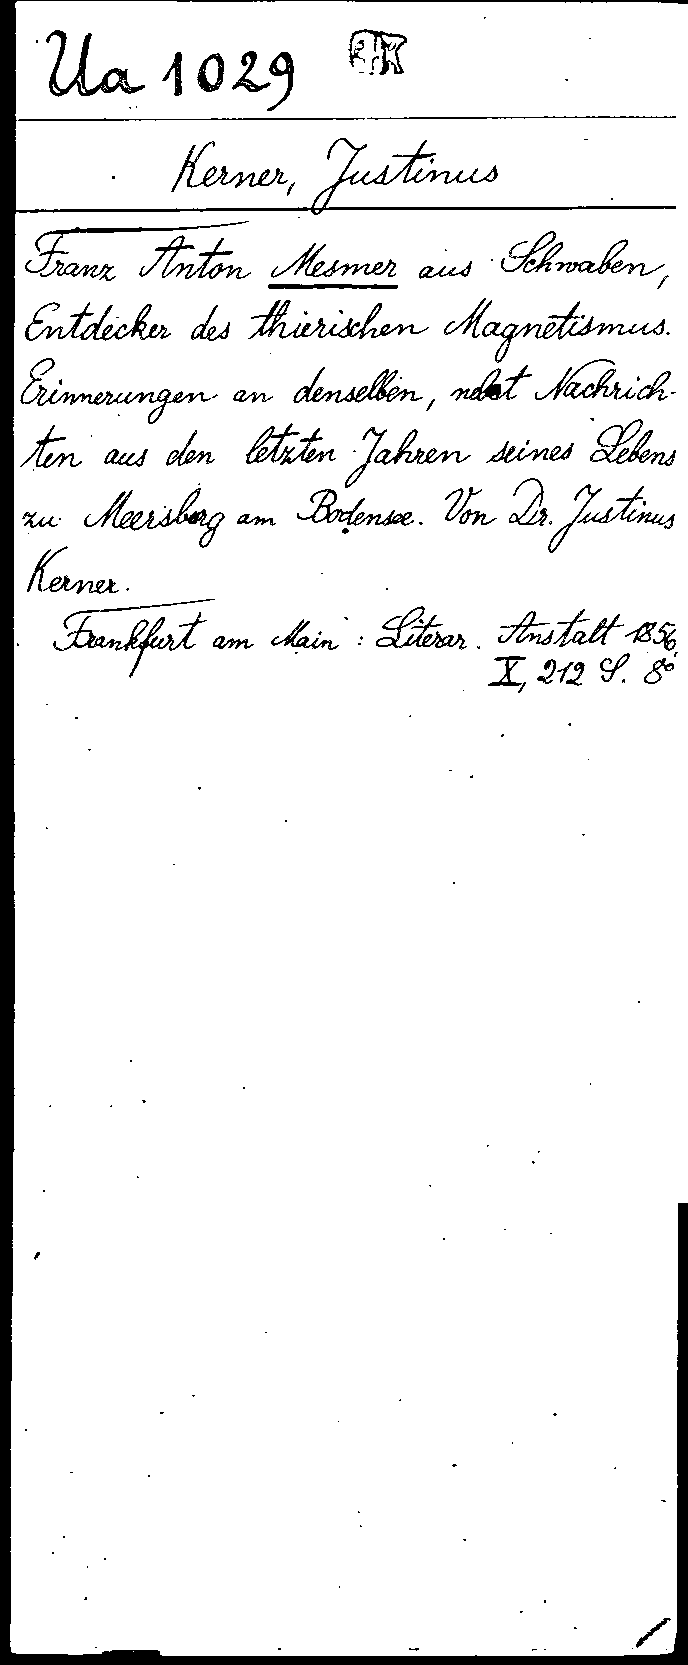 Ua 1029
Kerner, Justinus
Franz Anton Mesmer aus Schwaben,
Entdecker des thierischen Magnetismus.
Erinnerungen an denselben, nebst Nachrich-
ten aus den letzten Jahren seines Lebens
zu Meersburg am Bodensee. Von Dr. Justinus
Kerner.
Frankfurt am Main : Literar. Anstalt 1856.
X, 212 S. 8°